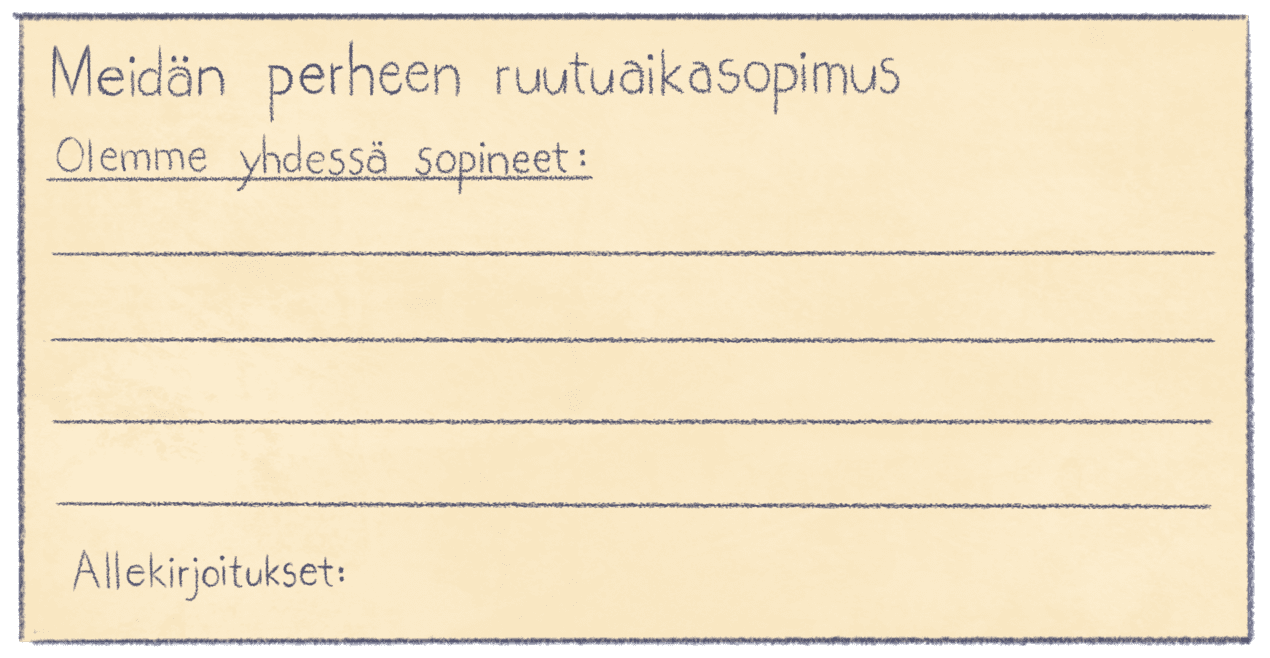 Meidän perheen ruutuaikasopimus
Olemme yhdessä sopineet:
Allekirjoitukset: